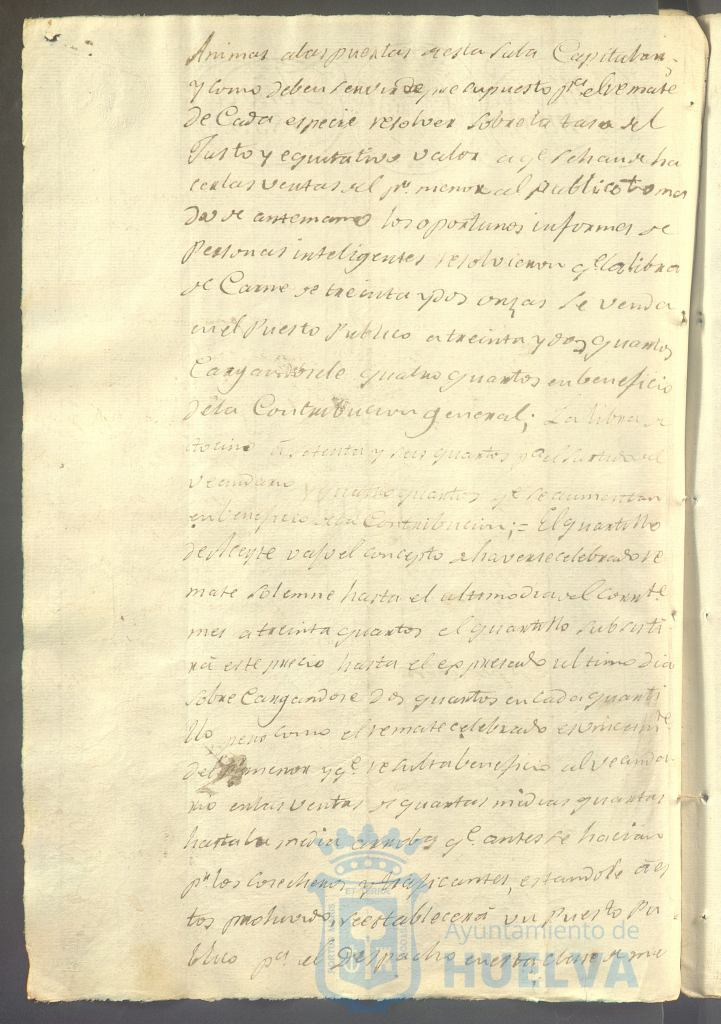 Animas alas puertas de esta Sala Capitular:
y como deben servir de presupuesto pa. el remate
de Cada especie resolver sobre la tasa del
Justo y equitativo valor a qe. se han de ha
cer las ventas al pr. menor al publico toma
do de antemano los oportunos informes de
Personas inteligentes resolvieron qe. la libra
de Carne de treinta y dos onzas se venda
en el Puesto Publico a treinta y dos quartos
Cargandosele quatro quartos en beneficio
de la Contribucion general; La libra de
tocino a setenta y seis quartos pa. el surtido del
vecindario y quatro quartos qe. se aumentan
en beneficio de la Contribucion;= El quartillo
de Aceyte vajo el concepto de haverse celebrado re
mate solemne hasta el ultimo dia del corrte.
mes a treinta quartos el quartillo subsisti
rá este precio hasta el expresado ultimo dia
sobre Cargandose dos quartos en cada quarti
llo pero como el remate celebrado es
del pr. menor y qe. resulta beneficio al vecinda
rio en las ventas de quartas medias quartas
hasta la media arroba qe. antes se hacian
pr. los Cosecheros y traficantes, estandole a es
tos prohivido, se establecerá un Puesto Pu
blico pa. el Despacho en esta clase de me
Ayuntamiento de
HUELVA